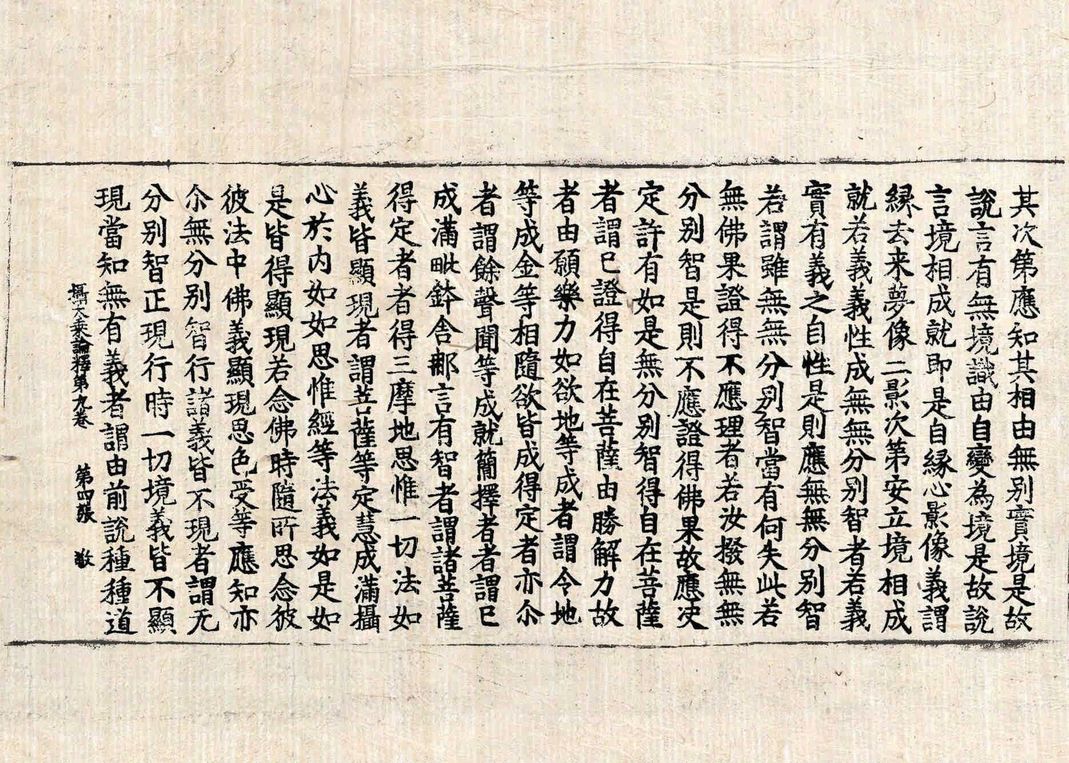 其次第應知其相由無別實境是故
説言有無境識由自變為境是故説
言境相成就即是自緣心影像義謂
縁去来夢像二影次第安立境相成
就若義義性成無無分別智者若義
實有義之自性是則應無無分别智
若謂雖無無分別智當有何失此若
無佛果證得不應理者若汝撥無無
分別智是則不應證得佛果故應決
定許有如是無分別智得自在菩薩
者謂已證得自在菩薩由勝解力故
者由願樂力如欲地等成者謂令地
等成金等相隨欲皆成得定者亦尒
者謂餘聲聞等成就簡擇者者謂已
成滿毗鉢舍那言有智者謂諸菩薩
得定者者得三摩地思惟一切法如
義皆顯現者謂菩薩等定慧成滿攝
心於内如如思惟經等法義如是如
是皆得顯現若念佛時隨所思念彼
彼法中佛義顯現思色受等應知亦
尒無分別智行諸義皆不現者謂无
分別智正現行時一切境義皆不顯
現當知無有義者謂由前説種種道
攝大乘論釋第九卷 第四張 敬